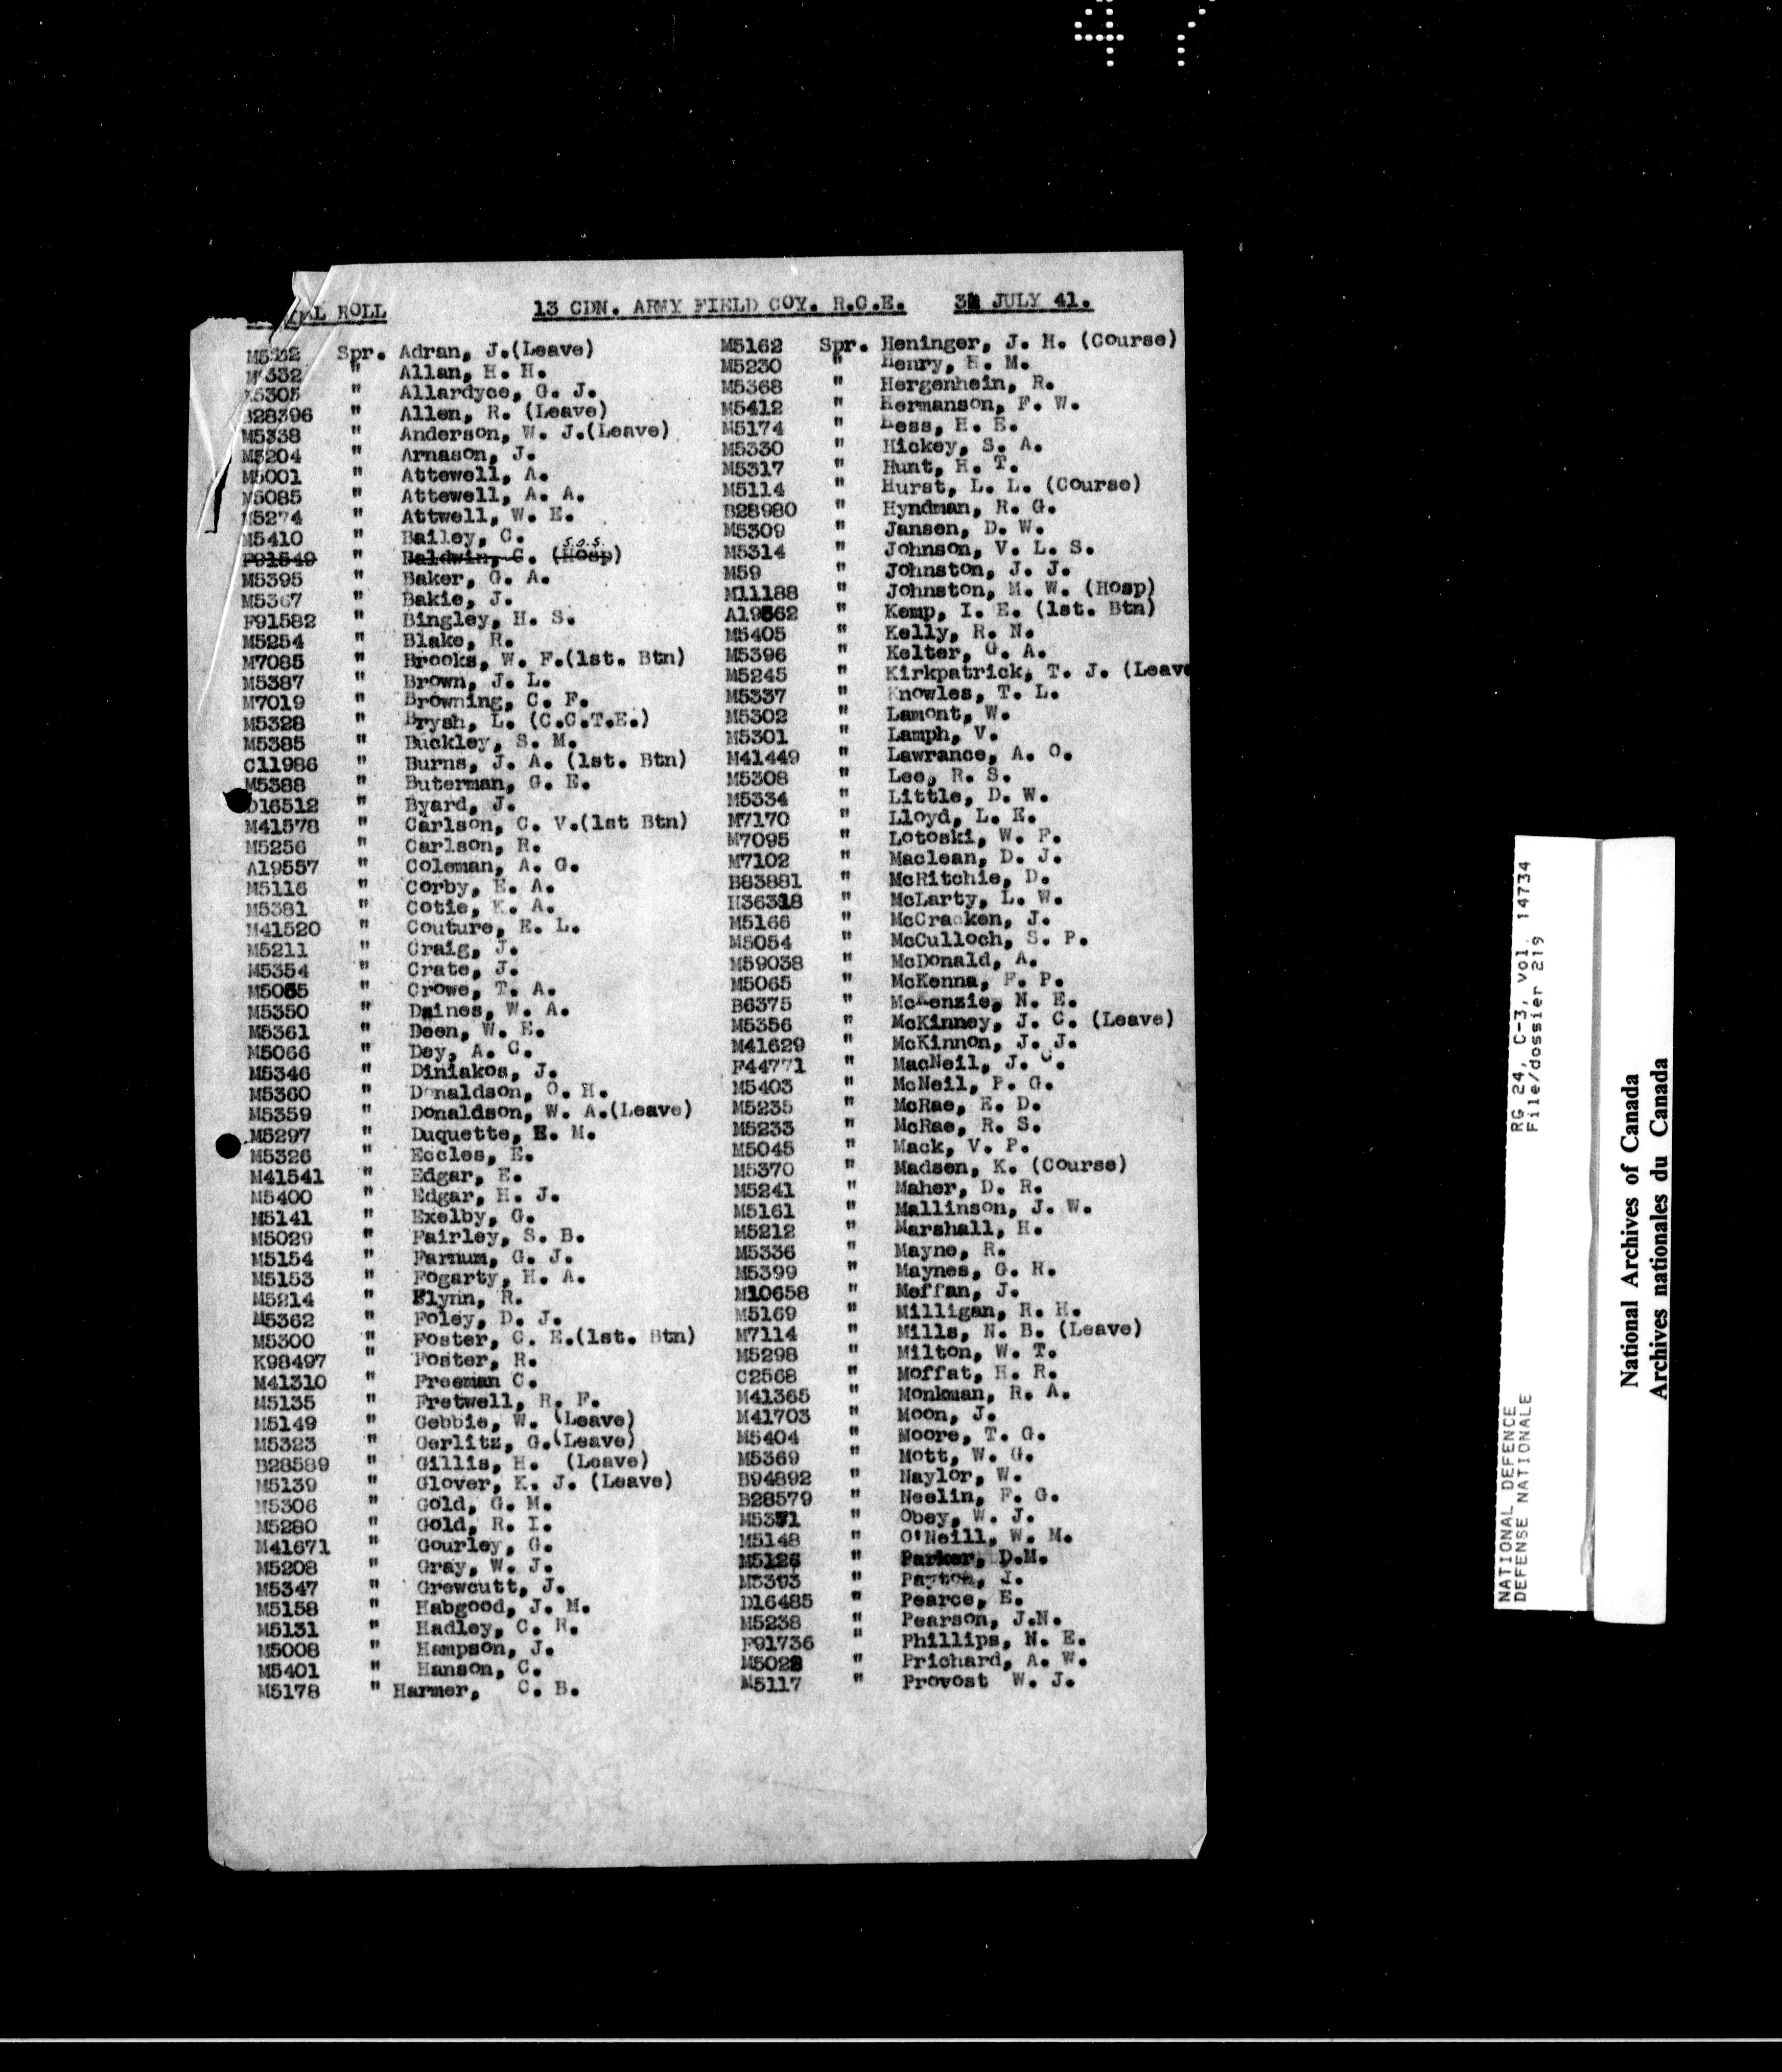 47
ROLL 13 CDN. ARMY FIELD COY. R.C.E. 31 JULY 41.
Spr. Adran, J.(Leave)
" Allan, H. H.
5305 " Allardyce, G. J.
B28396 " Allen, R. (Leave)
M5338 " Anderson, W. J.(Leave)
M5204 " Arnason, J.
M5001 " Attewell, A.
M5085 " Attewell, A. A.
M5274 " Attwell, W. E.
M5410 " Bailey, C.
s.o.s.
F91549 " Baldwin, C. (Hosp)
M5395 " Baker, G. A.
M5367 " Bakie, J.
F91582 " Bingley, H. S.
M5254 " Blake, R.
M7085 " Brooks, W. F.(1st. Btn)
M5387 " Brown, J. L.
M7019 " Browning, C. F.
M5328 " Brysh, L. (C.C.T.E.)
M5385 " Buckley, S. M.
C11986 " Burns, J. A. (1st. Btn)
M5388 " Buterman, G. E.
D16512 " Byard, J.
M41578 " Carlson, C. V.(1st Btn)
M5256 " Carlson, R.
A19557 " Coleman, A. G.
M5116 " Corby, E. A.
M5381 " Cotie, K. A.
M41520 " Couture, E. L.
M5211 " Craig, J.
M5354 " Crate, J.
" Crowe, T. A.
M5350 " Daines, W. A.
M5361 " Deen, W. E.
M5066 " Dey, A. C.
M5346 " Diniakos, J.
M5360 " Donaldson, O. H.
M5359 " Donaldson, W. A.(Leave)
M5297 " Duquette, E. M.
M5326 " Eccles, E.
M41541 " Edgar, E.
M5400 " Edgar, H. J.
M5141 " Exelby, G.
M5029 " Fairley, S. B.
M5154 " Farnum, G. J.
M5153 " Fogarty, H. A.
M5214 " Flynn, R.
M5362 " Foley, D. J.
M5300 " Foster, C. E.(1st. Btn)
K98497 " Foster, R.
M41310 " Freeman C.
M5135 " Fretwell, R. F.
M5149 " Gebbie, W. (Leave)
M5323 " Gerlitz, G.(Leave)
B28589 " Gillis, H. (Leave)
M5139 " Glover, K. J. (Leave)
M5306 " Gold, G. M.
M5280 " Gold, R. I.
M41671 " Gourley, G.
M5208 " Gray, W. J.
M5347 " Grewcutt, J.
M5158 " Habgood, J. M.
M5131 " Hadley, C. R.
M5008 " Hampson, J.
M5401 " Hanson, C.
M5178 " Harmer, C. B.
M5162 Spr. Heninger, J. H. (Course)
M5230 " Henry, H. M.
M5368 " Hergenhein, R.
M5412 " Hermanson, F. W.
M5174 " Hess, H. E.
M5330 " Hickey, S. A.
M5317 " Hunt, H. T.
M5114 " Hurst, L. L. (Course)
B28980 " Hyndman, R. G.
M5309 " Jansen, D. W.
M5314 " Johnson, V. L. S.
M59 " Johnston, J. J.
M11188 " Johnston, M. W. (Hosp)
A19562 " Kemp, I. E. (1st. Btn)
M5405 " Kelly, R. N.
M5396 " Kelter, G. A.
M5245 " Kirkpatrick, T. J. (Leave
M5337 " Knowles, T. L.
M5302 " Lamont, W.
M5301 " Lamph, V.
M41449 " Lawrance, A. O.
M5308 " Lee, R. S.
M5334 " Little, D. W.
M7170 " Lloyd, L. E.
M7095 " Lotoski, W. F.
M7102 " Maclean, D. J.
B83881 " McRitchie, D.
H36318 " McLarty, L. W.
M5166 " McCracken, J.
M5054 " McCulloch, S. P.
M59038 " McDonald, A.
M5065 " McKenna, F. P.
B6375 " McKenzie, N. E.
M5356 " McKinney, J. C. (Leave)
M41629 " McKinnon, J. J.
F44771 " MacNeil, J. C.
M5403 " McNeil, P. G.
M5235 " McRae, E. D.
M5233 " McRae, R. S.
M5045 " Mack, V. P.
M5370 " Madsen, K. (Course)
M5241 " Maher, D. R.
M5161 " Mallinson, J. W.
M5212 " Marshall, H.
M5336 " Mayne, R.
M5399 " Maynes, G. R.
M10658 " Meffan, J.
M5169 " Milligan, R. H.
M7114 " Mills, N. B. (Leave)
M5298 " Milton, W. T.
C2568 " Moffat, H. R.
M41365 " Monkman, R. A.
M41703 " Moon, J.
M5404 " Moore, T. G.
M5369 " Mott, W. G.
B94892 " Naylor, W.
B28579 " Neelin, F. G.
M5371 " Obey, W. J.
M5148 " O'Neill, W. M.
M5126 " Parker, D.M.
M5393 " Payton, I.
D16485 " Pearce, E.
M5238 " Pearson, J.N.
F91736 " Phillips, N. E.
M5028 " Prichard, A. W.
M5117 " Provost W. J.
NATIONAL DEFENCE RG 24, C-3, vol. 14734
DEFENSE NATIONALE File/dossier 219
National Archives of Canada
Archives nationales du Canada